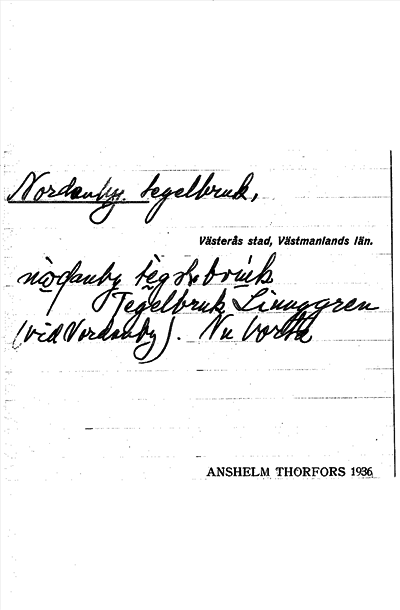 Nordanby tegelbruk,
Västerås stad, Västmanlands län.
Tegelbruk Linnggren
(vid Nordanby). Nu borta
ANSHELM THORFORS 1936